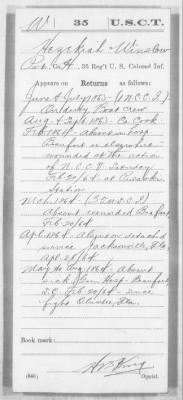 W 35 U.S.C.T.
Hezekiah Winslow
Pvt, Co. H, 35 Reg't U. S. Colored Inf.
Appears on Returns as follows:
June & July 1863 (1 N.C.C.I.)
On duty Boat Crew
Aug & Sept 1863 Co. Cook
Feb 1864 absent in hosp
Beaufort
wounded at the action
Feb 20/64 at
Station
Mch 1864
Absent wounded Beaufort
Feb 20/64
Apl 1864 Absent on detach'd
service Jacksonville, Fla.
Apl 28/64
May to Aug 1864 absent
sick Gen Hosp Beaufort
S.C. Feb 20/64 since
fight Olustee, Fla.
Book mark:
(646) Copyist.